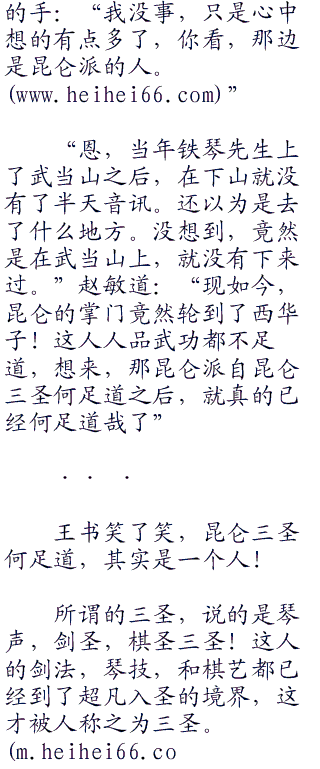 的手：“我没事，只是心中
想的有点多了，你看，那边
是昆仑派的人。
(www.heihei66.com)”
“恩，当年铁琴先生上
了武当山之后，在下山就没
有了半天音讯。还以为是去
了什么地方。没想到，竟然
是在武当山上，就没有下来
过。”赵敏道：“现如今，
昆仑的掌门竟然轮到了西华
子！这人人品武功都不足
道，想来，那昆仑派自昆仑
三圣何足道之后，就真的已
经何足道哉了”
．．．
王书笑了笑，昆仑三圣
何足道，其实是一个人！
所谓的三圣，说的是琴
声，剑圣，棋圣三圣！这人
的剑法，琴技，和棋艺都已
经到了超凡入圣的境界，这
才被人称之为三圣。
(m.heihei66.co